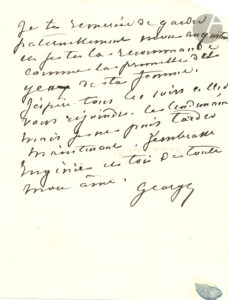 Je te remercie de garder
fraternellement mon argent
et je te la recommande
comme la prunelle des
yeux de ta femme.
J'espère tous les soirs aller
vous rejoindre, les
mais je ne puis tarder
maintenant. J'embrasse
Eugénie et toi de toute
mon âme.
George